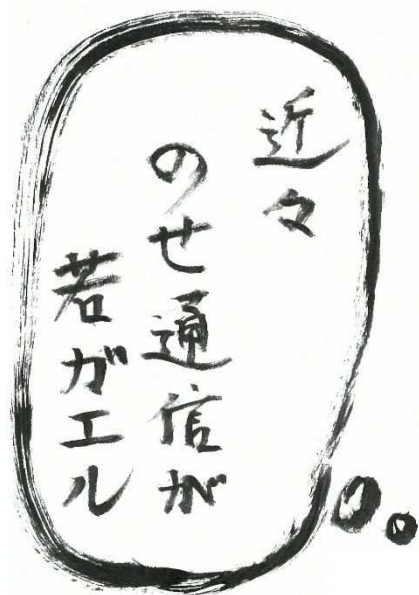 近々
のせ通信が
若ガエル